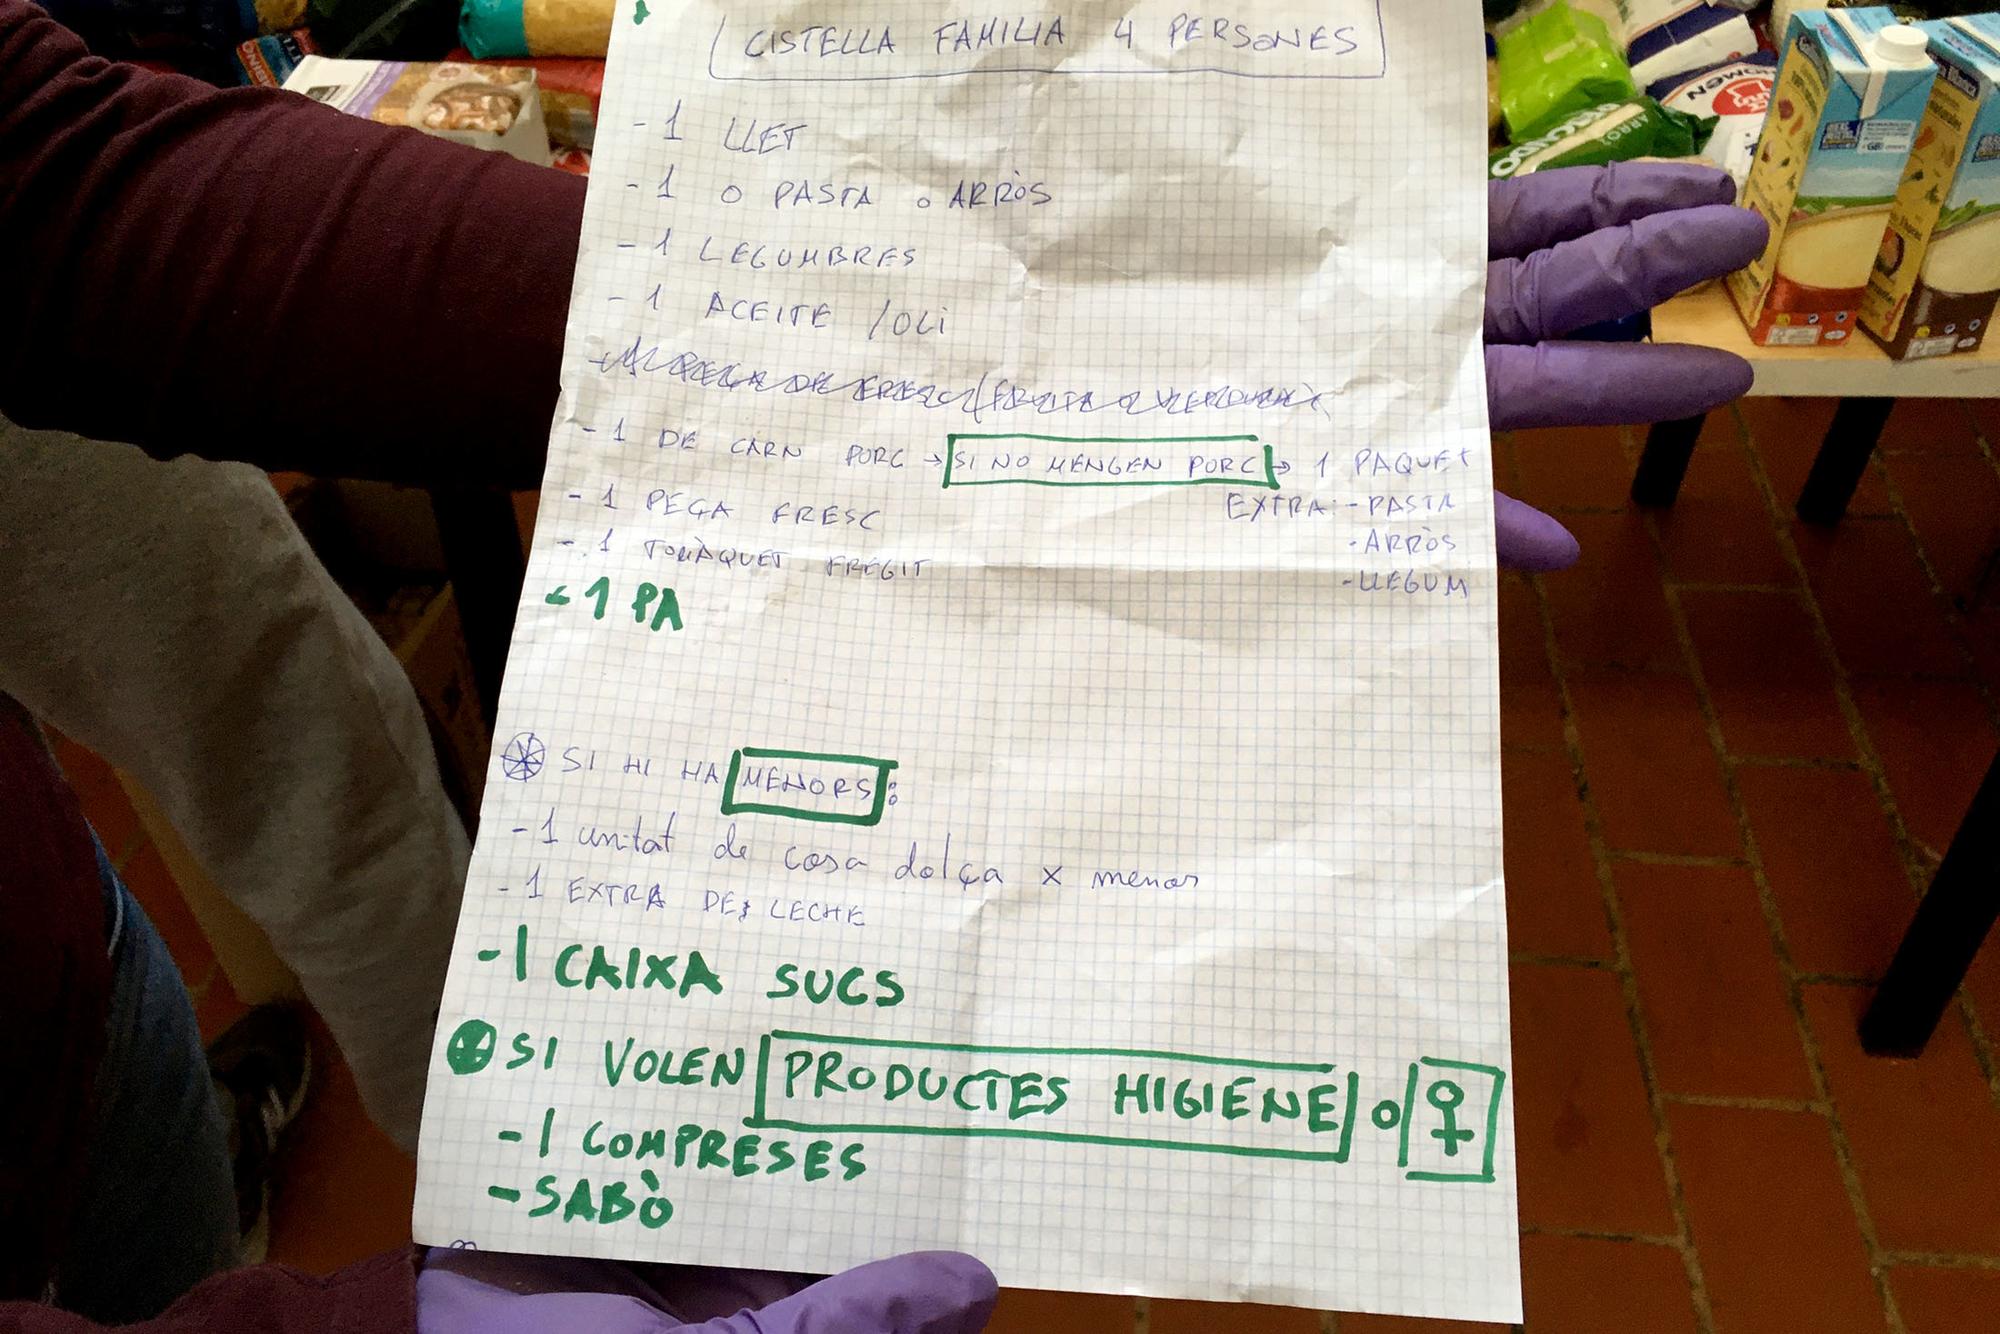 CISTELLA FAMILIA 4 PERSONES
- 1 LLET
- 1 O PASTA O ARRÒS
- 1 LEGUMBRES
- 1 ACEITE / OLI
- 1 PEÇA DE FRESC (FRUITA O VERDURA)
- 1 DE CARN PORC → SI NO MENGEN PORC → 1 PAQUET
EXTRA: - PASTA
- ARRÒS
- LLEGUM
- 1 PEÇA FRESC
- 1 TOMÀQUET FREGIT
- 1 PA
SI HI HA MENORS:
- 1 unitat de cosa dolça x menor
- 1 EXTRA DE LECHE
- 1 CAIXA SUCS
SI VOLEN PRODUCTES HIGIENE O ♀
- 1 COMPRESES
- SABÒ
ARROS